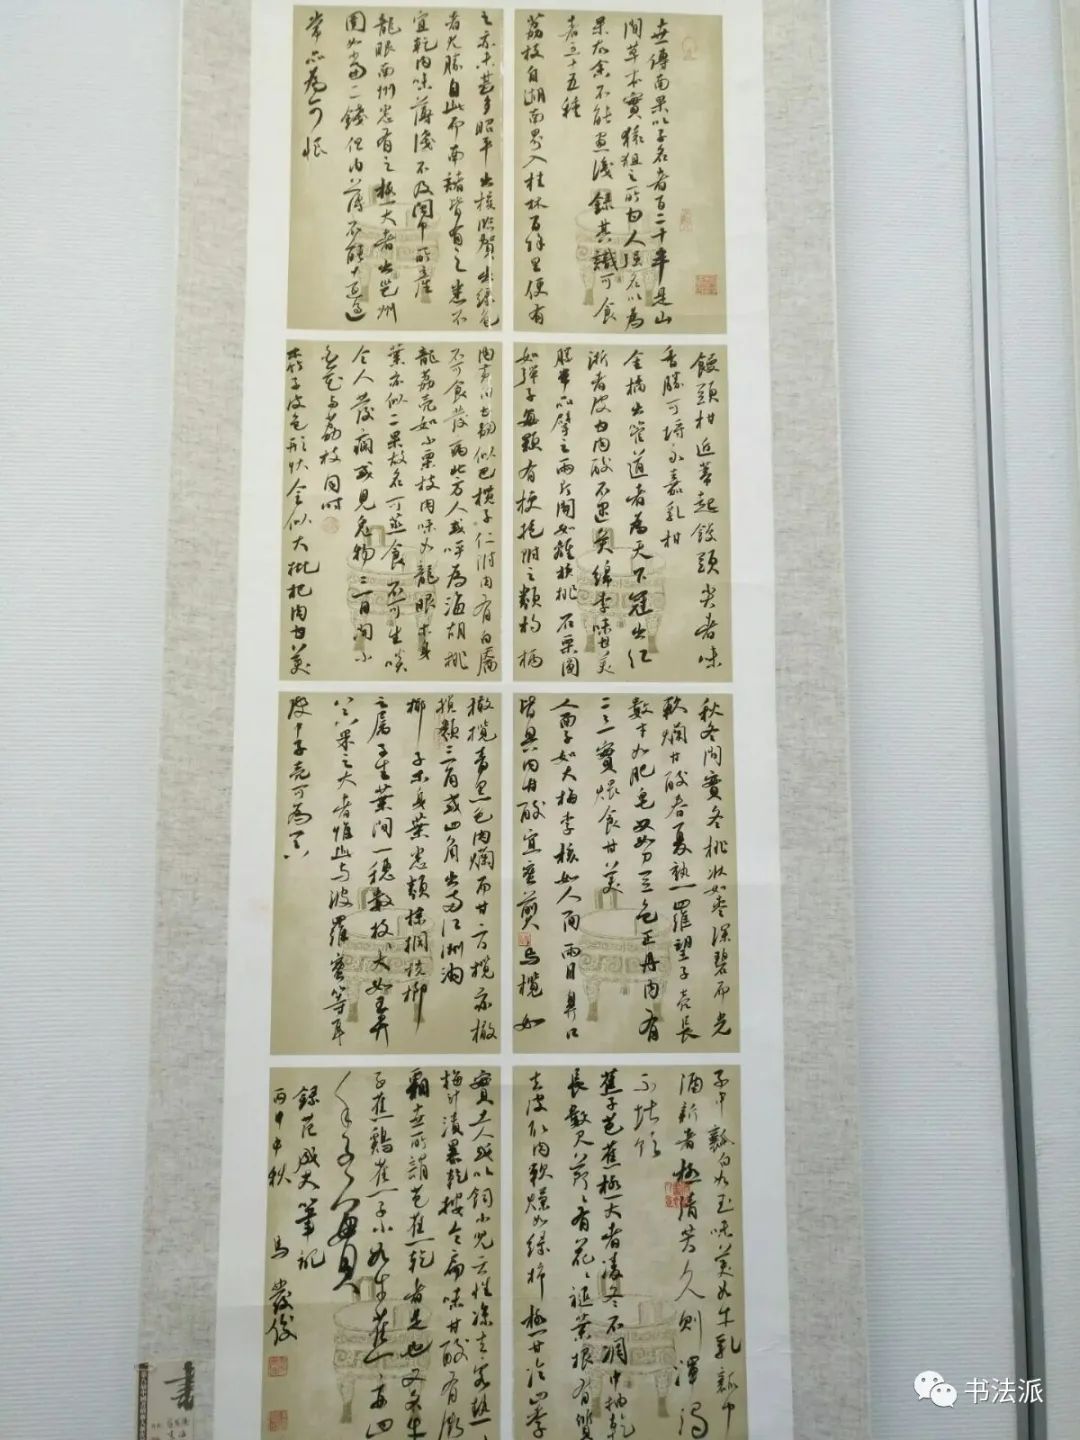 世傳南果以子名者百二十半是山
間草木實猿狙之所甘人強名以為
果故余不能盡識錄其識可食
者五十五種
荔枝自湖南界入桂林百餘里便有
之亦未甚多昭平出槵臨賀出綠色
者尤勝自此而南諸皆有之悉不
宜乾肉味薄淺不及閩中所産
龍眼南州悉有之極大者出邕州
圍如當二錢但肉薄不能大過
常品為可恨
饅頭柑近蒂起饅頭尖者味
香勝可埒永嘉乳柑
金橘出營道者為天下冠出江
浙者皮甘肉酸不逮矣綿李味甘美
勝常品擘之兩片開如離核桃石栗圓
如彈子每顆有梗抱附之類枸柄
肉黃白甚韌似巴欖子仁附肉有白靨
不可食發病北方人或呼為海胡桃
龍荔殼如小栗枝肉味如龍眼木身
葉亦似二果故名可蒸食不可生啖
令人發癇或見鬼物三月開小
白花與荔枝同時
木竹子皮色形狀全似大枇杷肉甘美
秋冬間實冬桃狀如棗深碧而光
軟爛甘酸春夏熟羅望子殼長
數寸如肥皂又如刀豆色正丹內有
二三實煨食甘美
人面子如大梅李核如人面兩目鼻口
皆具肉甘酸宜蜜煎烏欖如
橄欖青黑色肉爛而甘方欖亦橄
欖類三角或四角出兩江洲洞
椰子木身葉悉類棕櫚桄榔
之屬子生葉間一穗數枚大如五升
器果之大者惟此與波羅蜜等耳
皮中子殼可為器
子中瓤白如玉味美如牛乳瓤中
酒新者極清芳久則渾濁
不堪飲
蕉子芭蕉極大者凌冬不凋中抽幹
長數尺節節有花花褪葉根有實
去皮取肉軟爛如綠柿極甘冷四季
實土人或以飼小兒云性涼去客熱以
梅汁漬暴乾按令扁味甘酸有微
霜世所謂芭蕉乾者是也又名牛
子蕉雞蕉子小如牛蕉亦四
季實
錄范成大筆記
丙申中秋 馬發俊
书法派